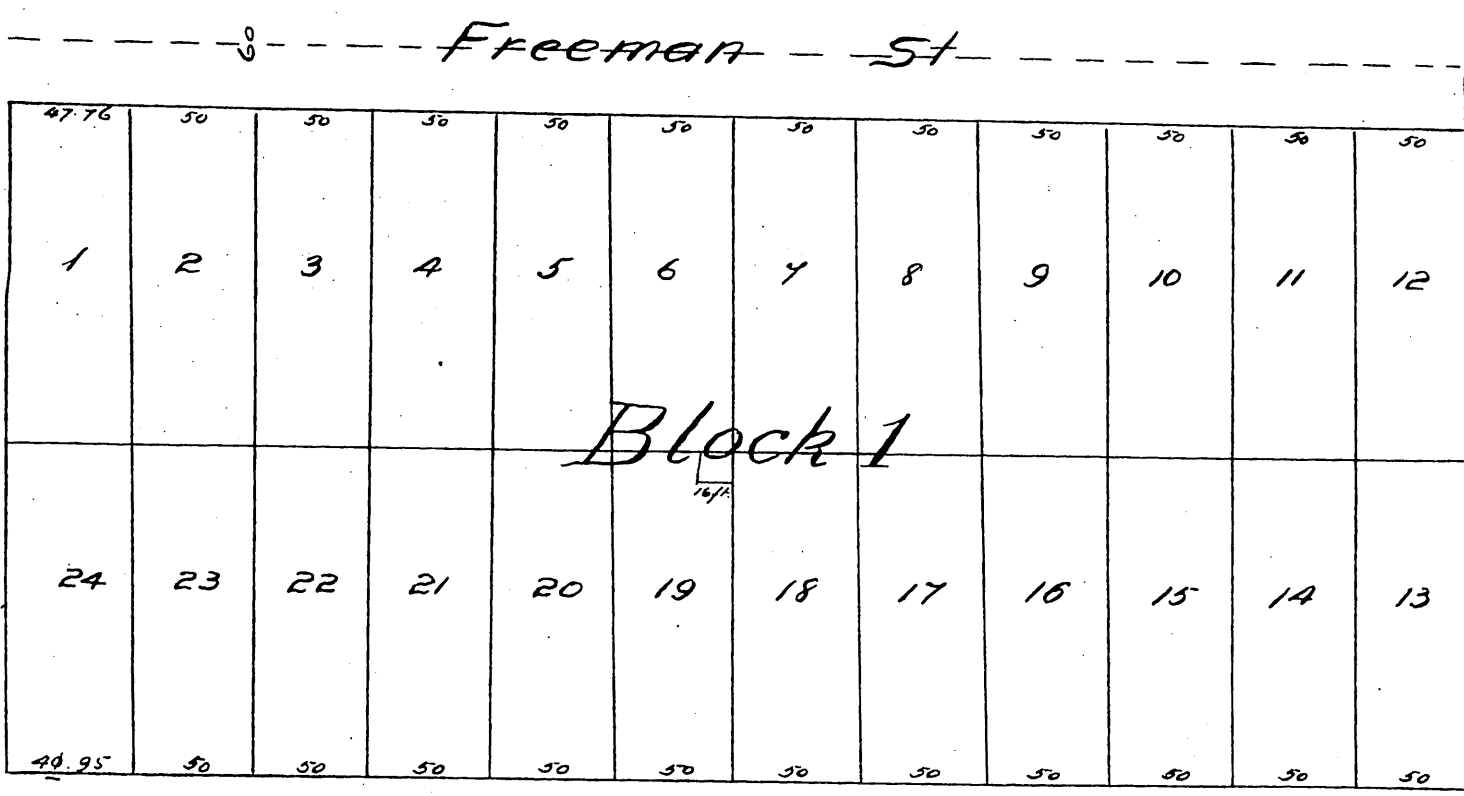 60 Freeman St
47.76 50 50 50 50 50 50 50 50 50 50 50
1 2 3 4 5 6 7 8 9 10 11 12
Block 1
16ft.
24 23 22 21 20 19 18 17 16 15 14 13
50 50 50 50 50 50 50 50 50 50 50